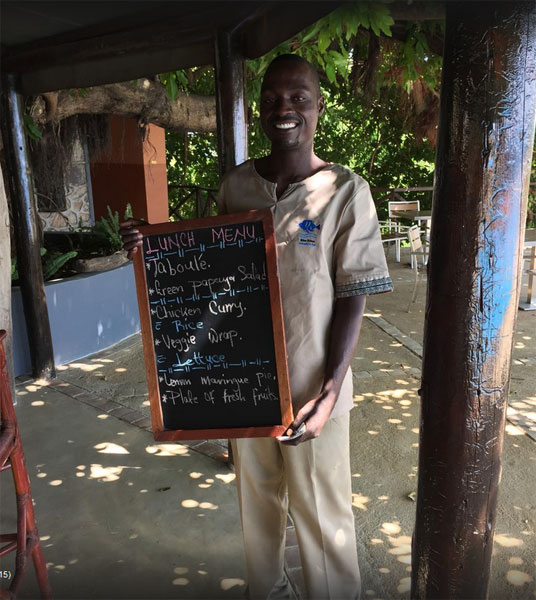 LUNCH MENU
*Taboulé.
*Green papaya Salad
*Chicken Curry.
E Rice
*Veggie Wrap.
E Lettuce
*Lemon maringue pie.
*Plate of fresh fruits.
15)